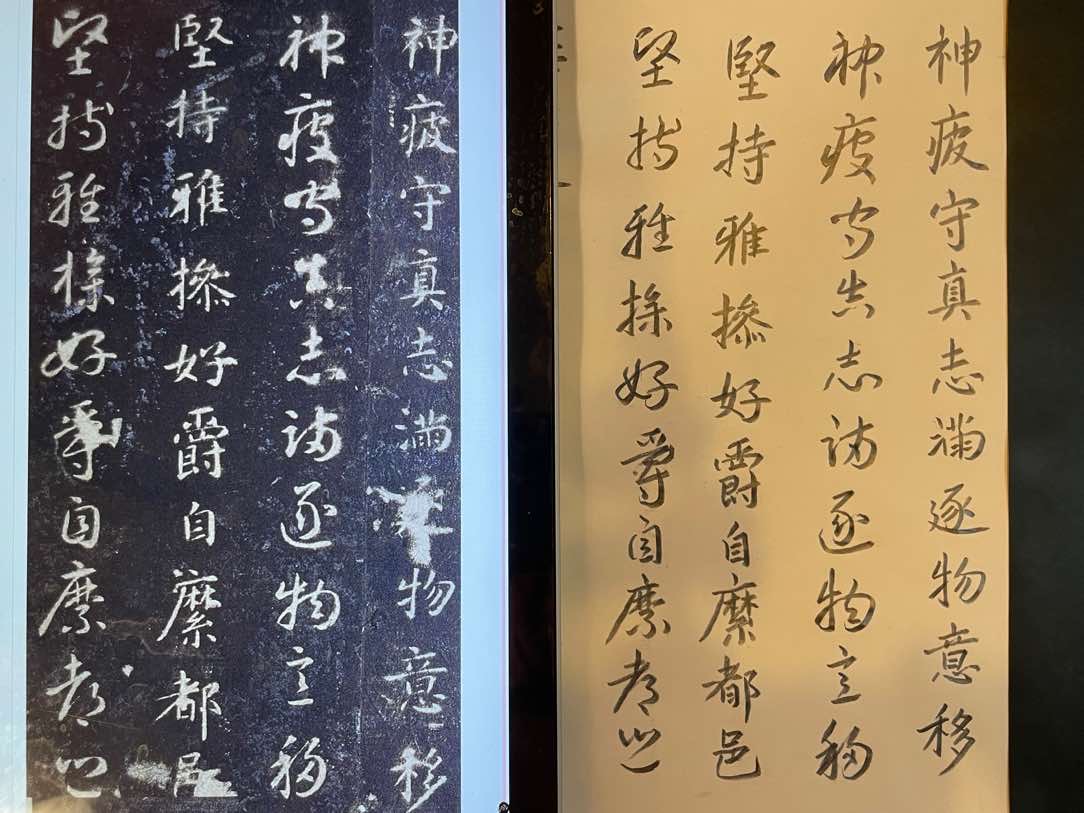 神疲守真志滿逐物意移
神疲守真志滿逐物意移
堅持雅操好爵自縻都邑
堅持雅操好爵自縻都邑
神疲守真志滿逐物意移
神疲守真志滿逐物意移
堅持雅操好爵自縻都邑
堅持雅操好爵自縻都邑